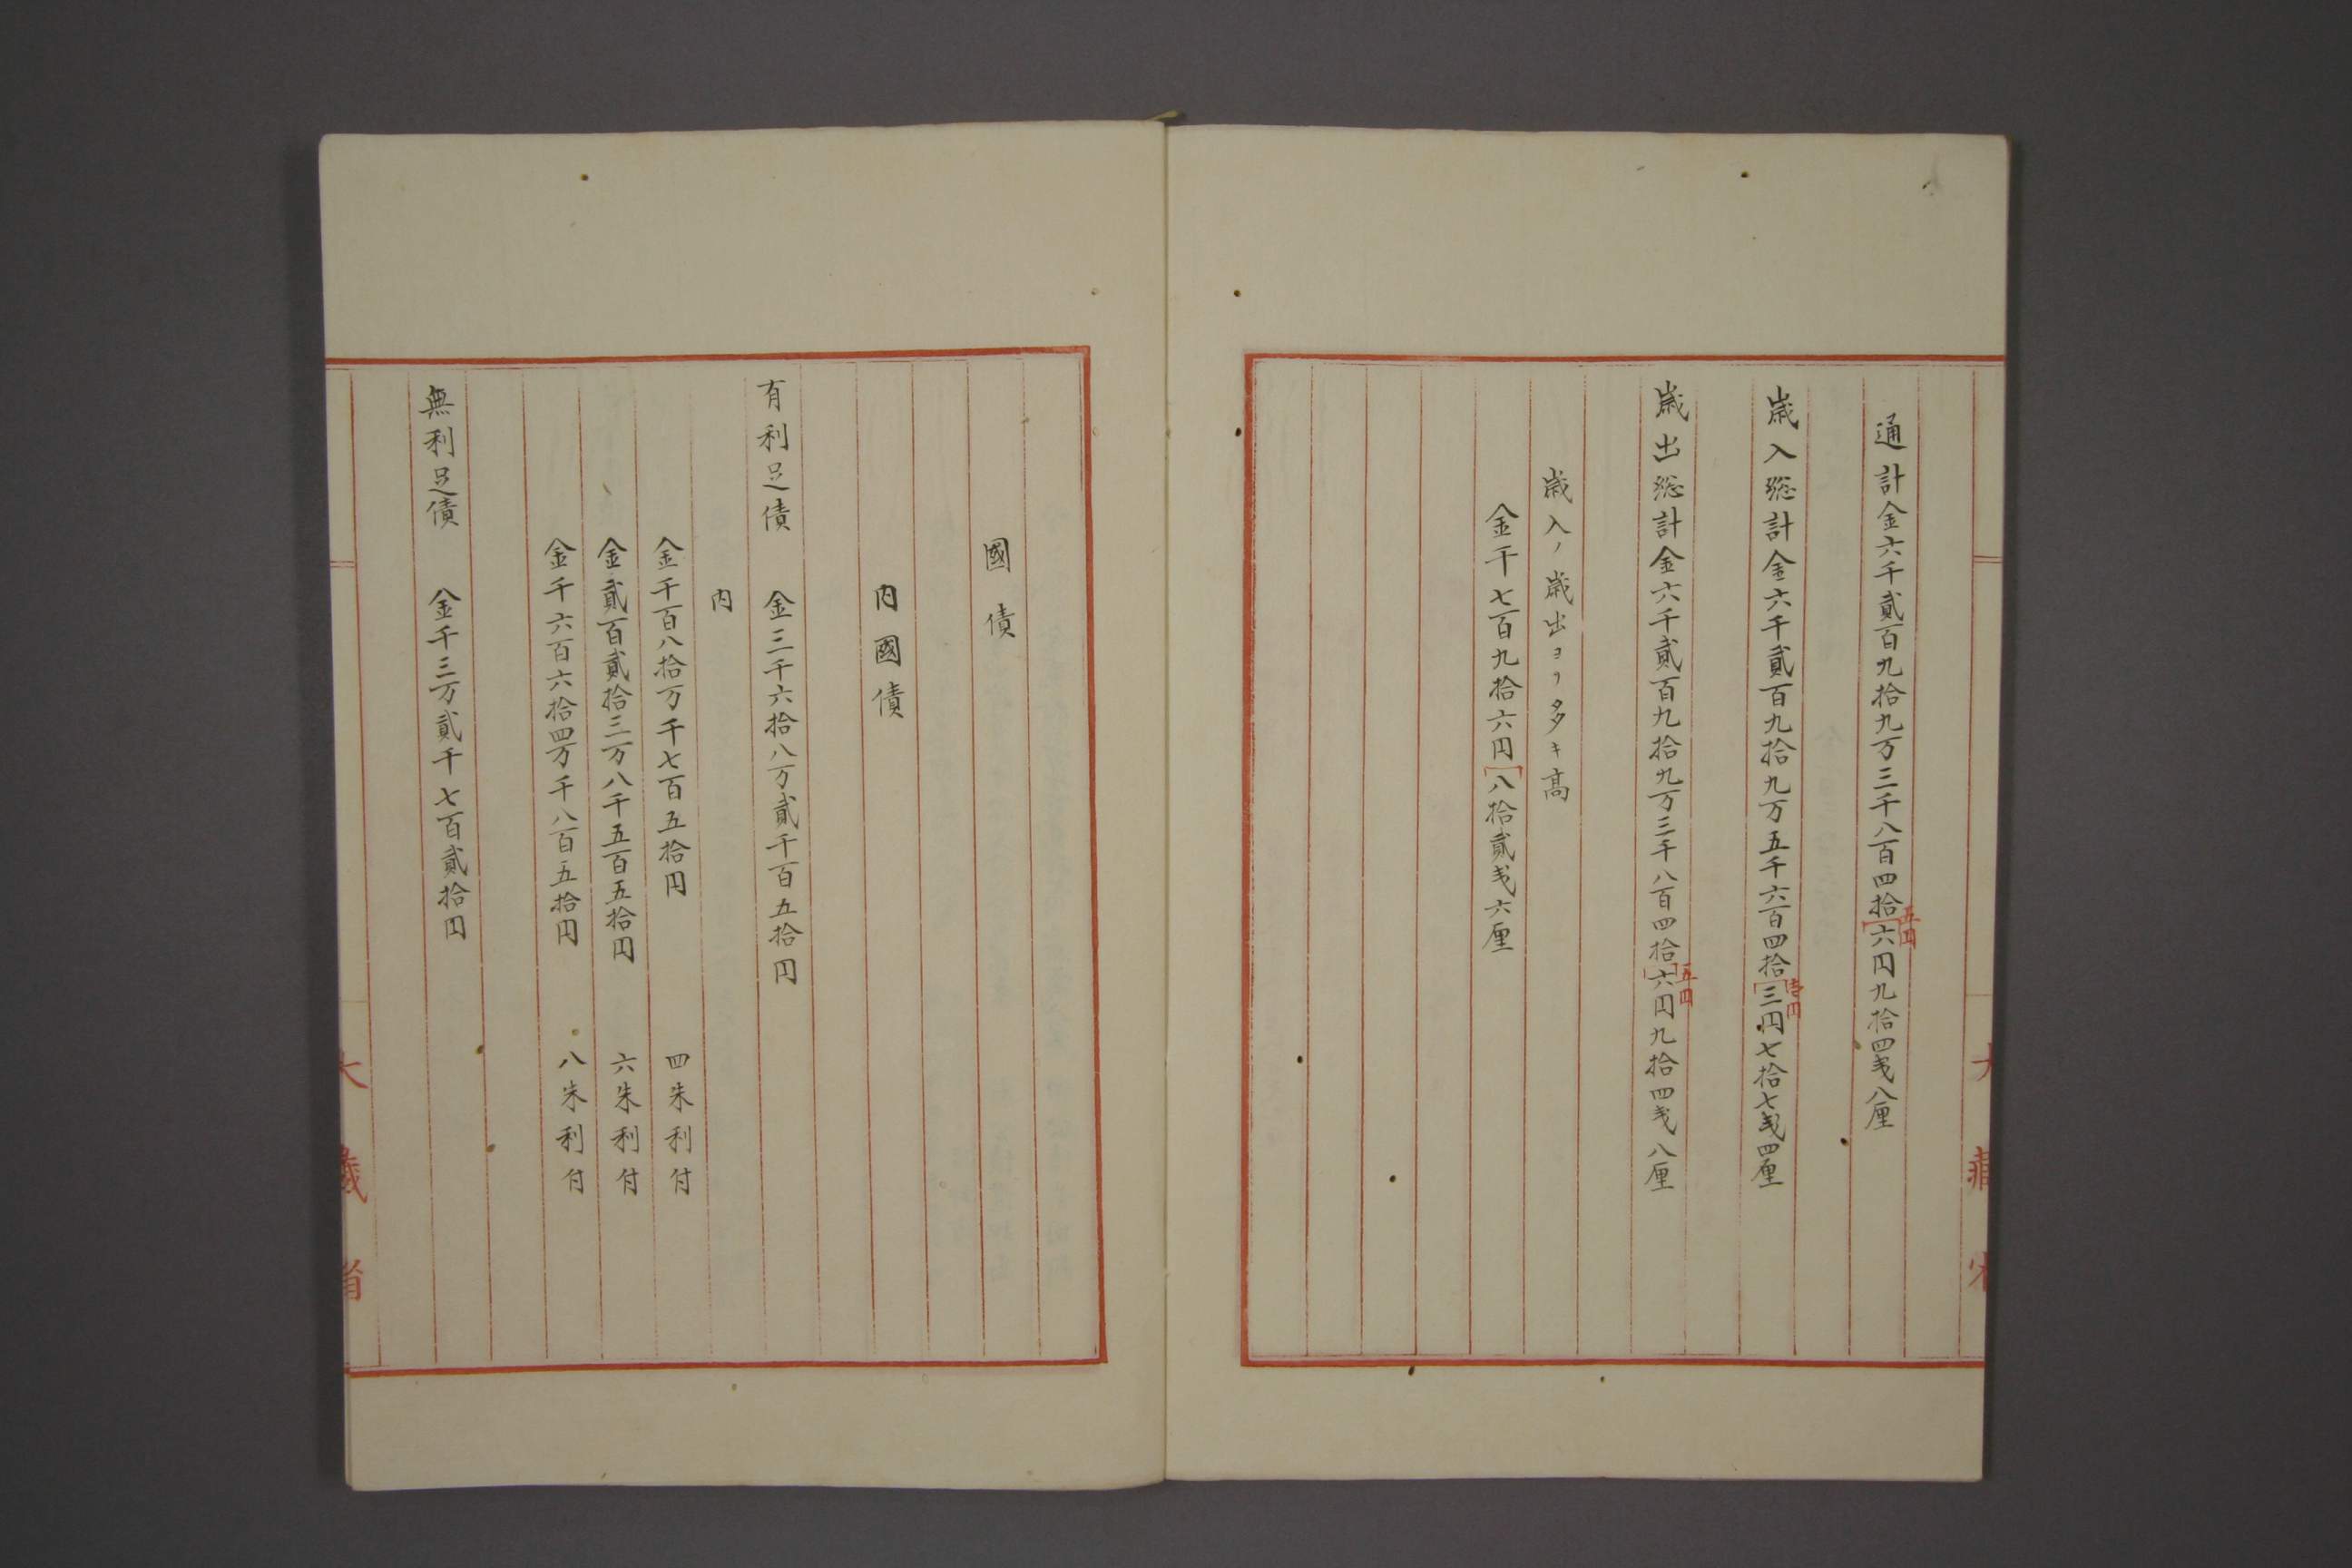 通計金六千貳百九拾九万三千八百四拾六円九拾四戔八厘
五円
歳入総計金六千貳百九拾九万五千六百四拾三円七拾七戔四厘
歳出総計金六千貳百九拾九万三千八百四拾六円九拾四戔八厘
五円
歳入ノ歳出ヨリ多キ高
金千七百九拾六円八拾貳戔六厘
國債
内國債
有利足債 金三千六拾八万貳千百五拾円
内
金千百八拾万千七百五拾円 四朱利付
金貳百貳拾三万八千五百五拾円 六朱利付
金千六百六拾四万千八百五拾円 八朱利付
無利足債 金千三万貳千七百貳拾円
大藏省